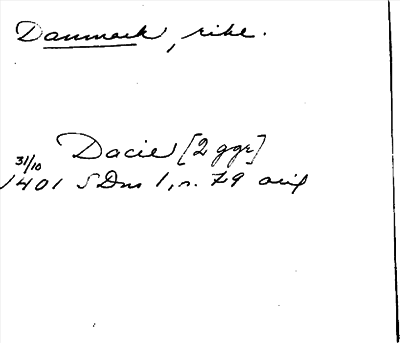 Danmark, rike.
Dacie [2 ggr]
31/10
1401 SDns 1, n. 79 orig